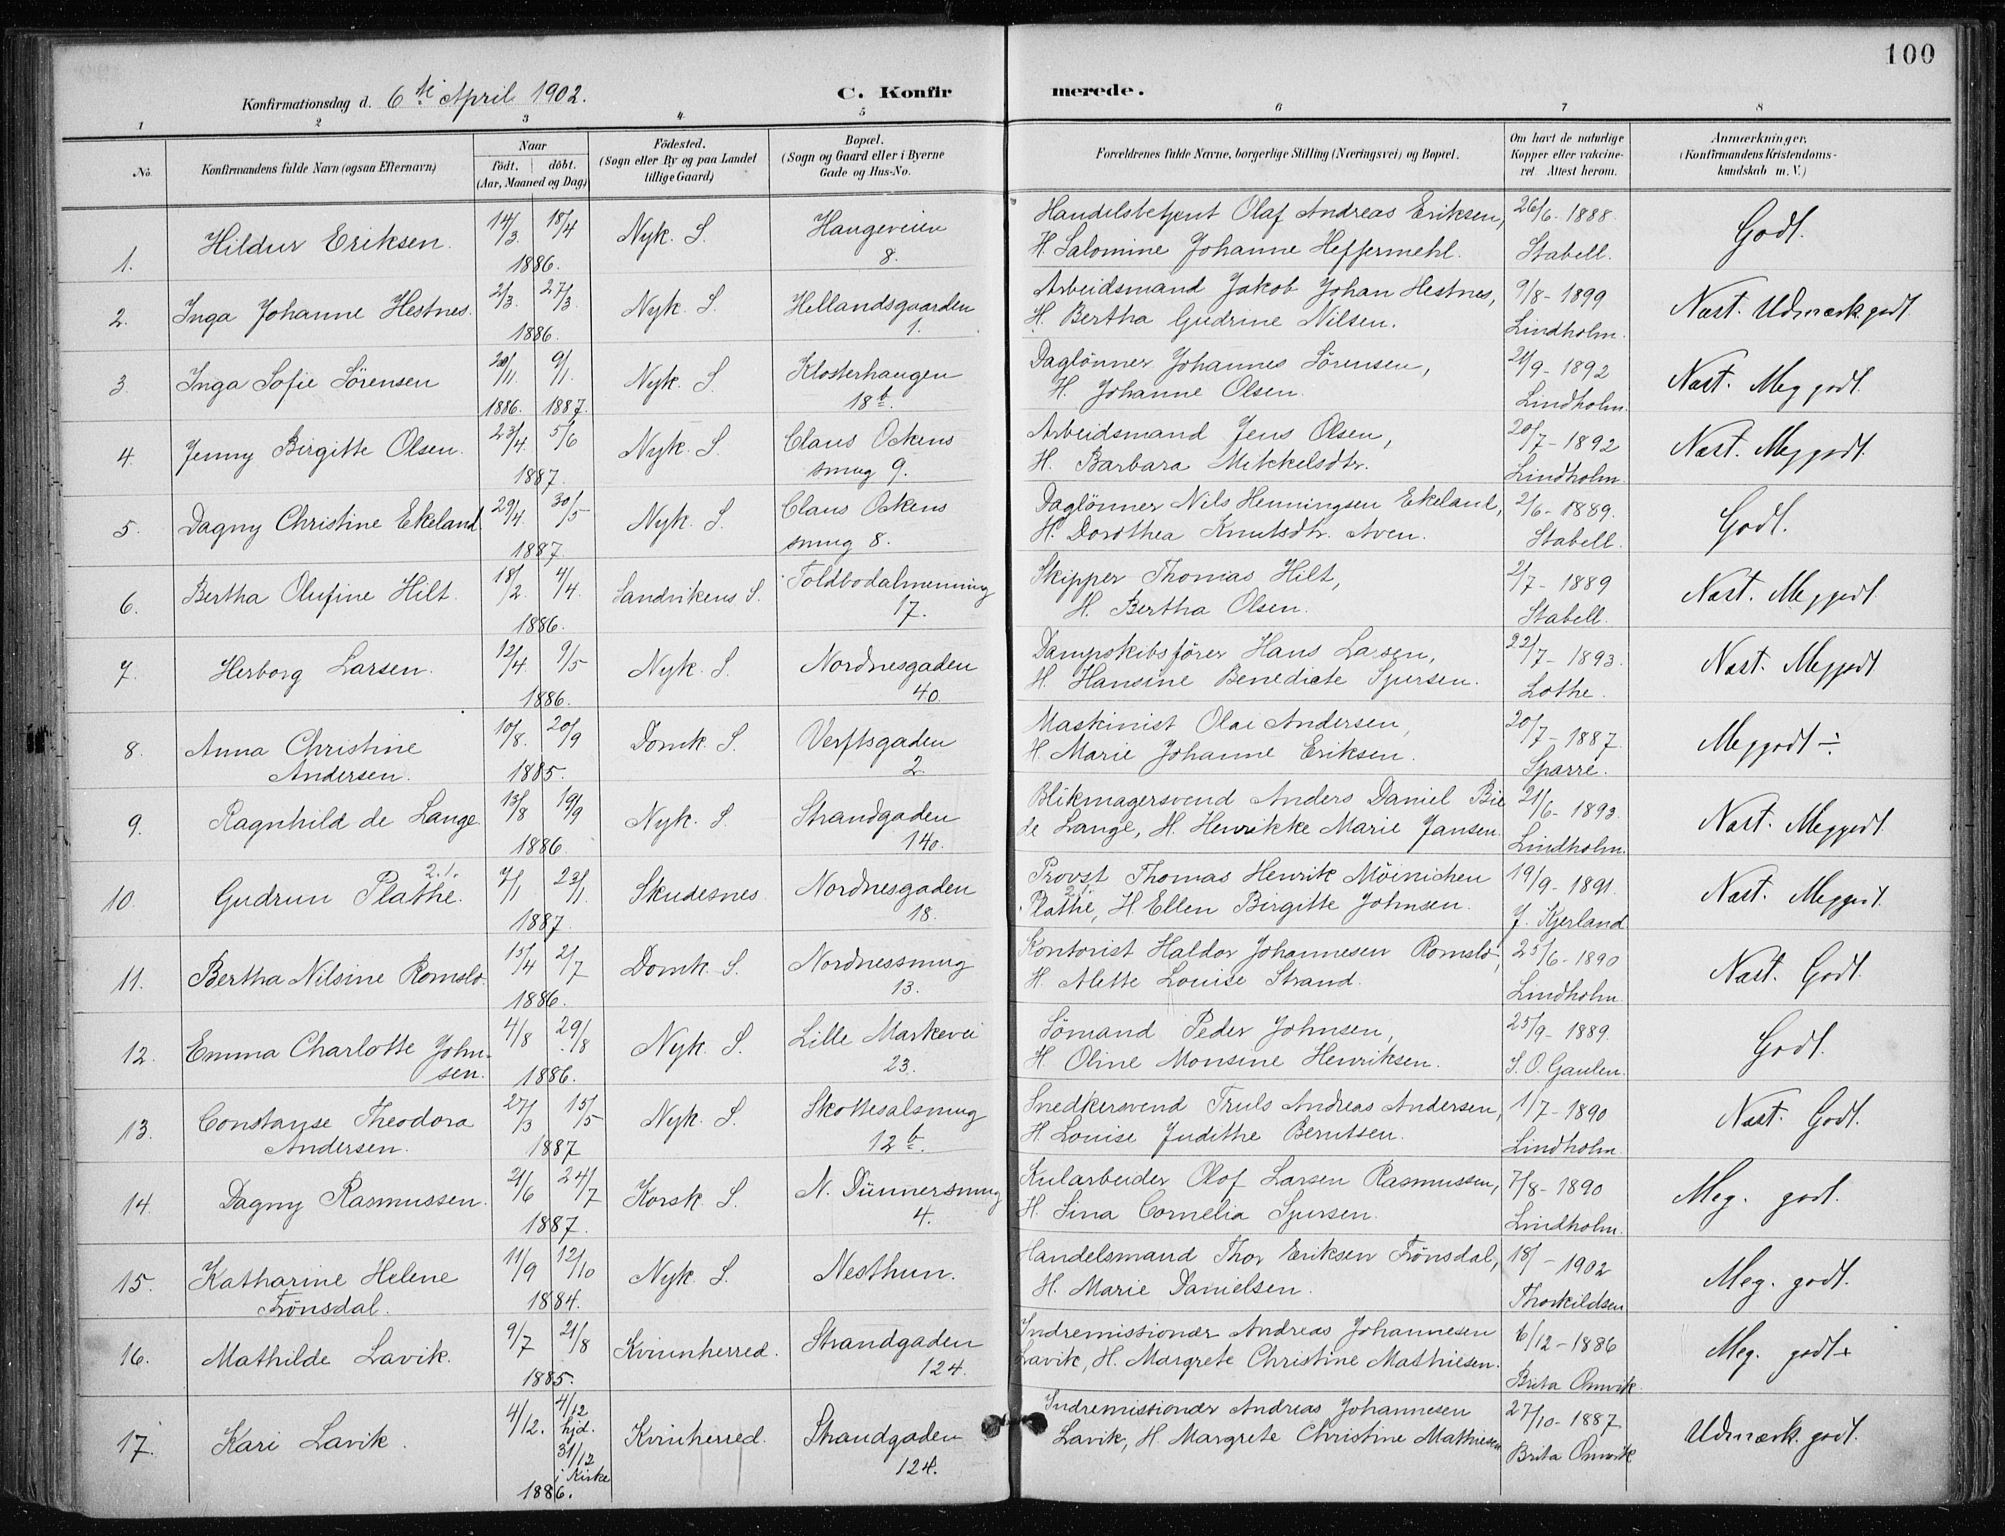 100
Konfirmationsdag d. 6te April 1902.
C. Konfirmerede.
1 2 3 4 5 6 7 8
No.
Konfirmandens fulde Navn (ogsaa Efternavn)
Naar
født. døbt.
(Aar, Maaned og Dag)
Fødested.
(Sogn eller By og paa Landet
tillige Gaard)
Bopæl.
(Sogn og Gaard eller i Byerne
Gade og Hus-No.
Forældrenes fulde Navne, borgerlige Stilling (Næringsvei) og Bopæl.
Om havt de naturlige
Kopper eller vakcine-
ret. Attest herom.
Anmærkninger,
(Konfirmandens Kristendoms-
kundskab m. V.)
1. Hildur Eriksen. 14/3. 18/4 1886. Nyk. S. Haugeveien 8.
Handelsbetjent Olaf Andreas Eriksen,
H. Salomine Johanne Heffermehl.
26/6 - 1888. Stabell. Godt.
2. Inga Johanne Hestnes. 2/3. 27/3 1886. Nyk. S. Hellandsgaarden 1.
Arbeidsmand Jakob Johan Hestnes,
H. Bertha Gudrine Nilsen.
9/8 - 1899 Lindholm. Næst. Udmærk. godt
3. Inga Sofie Sörensen 20/11 1886. 9/1. 1887. Nyk. S Klosterhaugen 18b.
Daglönner Johannes Sörensen,
H. Johanne Olsen.
21/9 - 1892 Lindholm. Næst. Meg godt.
4. Jenny Birgitte Olsen. 23/4. 5/6 1887. Nyk. S. Claus Ockens smug 9.
Arbeidsmand Jens Olsen,
H. Barbara Mikkelsdtr.
20/7 - 1892 Lindholm. Næst. Meg godt.
5. Dagny Christine Ekeland 29/4. 30/5 1887. Nyk. S. Claus Ockens smug 8.
Daglönner Nils Henningsen Ekeland,
H. Dorothea Knutsdtr. Aven.
2/6 - 1889. Stabell. Godt.
6. Bertha Olufine Hilt. 18/2. 4/4. 1886. Sandvikens S. Toldbodalmenning 17.
Skipper Thomas Hilt,
H. Bertha Olsen.
2/7 - 1889 Stabell. Næst. Meg godt.
7. Herborg Larsen. 12/4 9/5 1886. Nyk. S. Nordnesgaden 40.
Dampskibsförer Hans Larsen,
H. Hansine Benedicte Sjursen.
22/7 - 1893. Lothe. Næst. Meg godt
8. Anna Christine Andersen. 10/8. 20/9 1885. Domk. S. Verftsgaden 2.
Maskinist Olai Andersen,
H. Marie Johanne Eriksen.
20/7 - 1887. Sparre. Meg godt ÷
9. Ragnhild de Lange. 13/8 19/9 1886 Nyk. S. Strandgaden 140.
Blikmagersvend Anders Daniel Bie
de Lange, H. Henrikke Marie Jansen.
21/6 - 1893. Lindholm. Næst. Meg godt.
10. Gudrun Plathe. 7/1 23/1 1887. Skudesnes. Nordnesgaden 18.
Provst Thomas Henrik Möinichen
Plathe, H. Ellen Birgitte Johnsen.
19/9 - 1891. J. Kjerland Næst. Meg godt.
11. Bertha Nilsine Romslo. 15/4 2/7 1886. Domk. S. Nordnessmug 13.
Kontorist Haldor Johannesen Romslo,
H. Alette Louise Strand.
25/6 - 1890 Lindholm. Næst. Godt.
12. Emma Charlotte Johnsen. 4/8 29/8 1886. Nyk. S. Lille Markevei 23.
Sömand Peder Johnsen,
H. Oline Monsine Henriksen.
25/9 - 1889. S. O. Gaulen. Godt.
13. Constanse Theodora Andersen. 27/3 15/5 1887 Nyk. S. Skottesalsmug 12b.
Snedkersvend Truls Andreas Andersen,
H. Louise Judithe Berntsen.
1/7 - 1890 Lindholm. Næst. Godt.
14. Dagny Rasmussen. 21/6 24/7 1887. Korsk. S. N. Dünnersmug 4.
Kularbeider Olof Larsen Rasmussen,
H. Sina Cornelia Sjursen.
7/8 - 1890 Lindholm. Meg. godt.
15. Katharine Helene Frönsdal. 11/9 12/10 1884. Nyk. S. Nesthun.
Handelsmand Thor Eriksen Frönsdal,
H. Marie Danielsen.
18/ - 1902 Thorkildsen Meg. godt.
16. Mathilde Lavik. 9/7 21/8 1885. Kvinnherred. Strandgaden 124.
Indremissionær Andreas Johannesen
Lavik, H. Margrete Christine Mathiesen.
6/12 - 1886 Brita Omvik. Meg. godt +
17. Kari Lavik. 4/12. 4/12 hjd. 31/12 i Kirke 1886. Kvinherred. Strandgaden 124.
Indremissionær Andreas Johannesen
Lavik, H. Margrete Christine Mathiesen
27/10 - 1887. Brita Omvik Udmærk. godt.